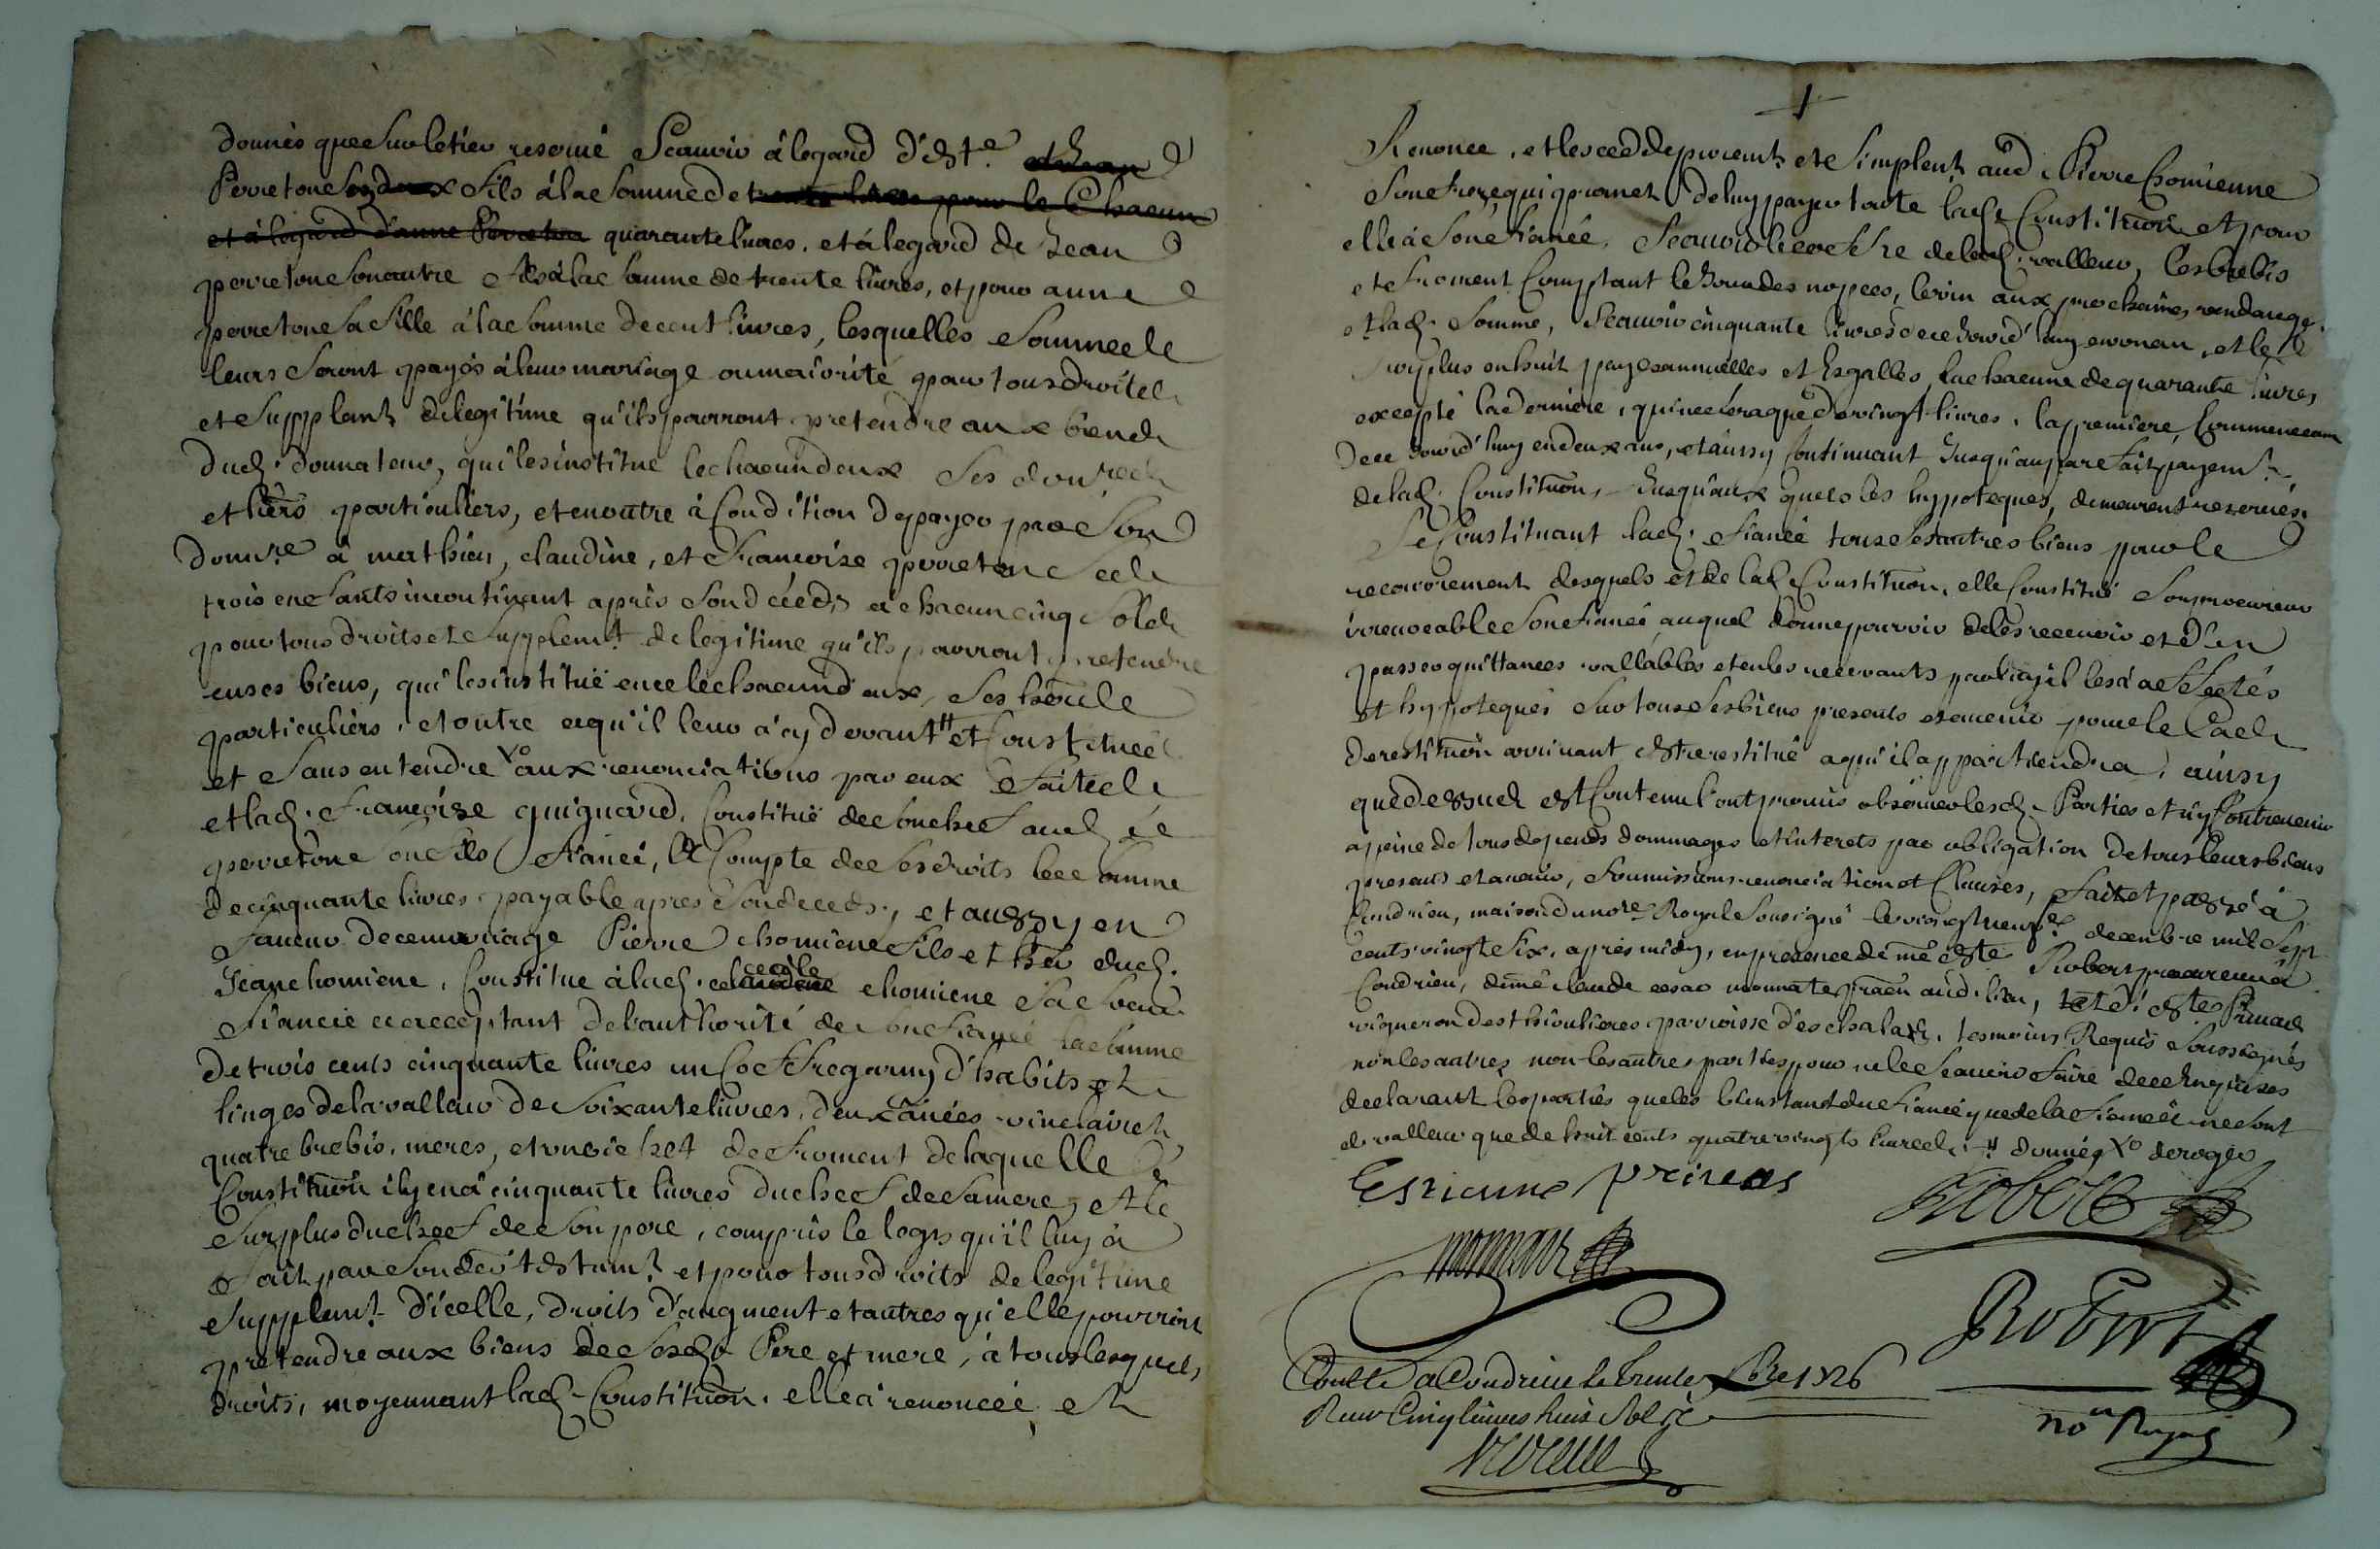 donnés que sur le tier reservé Scauvir à legard d'est.e et Jean
Perreton ses deux fils à la somme de trente livres pour le Chacun
et à legard d'anne Perreton quarante livres, et à legard de Jean
perreton son autre fils à la somme de trente livres, et pour anne
perreton sa fille à la somme de cent livres, lesquelles somme
leurs seront payés à leur mariage ou maiorité pour tous droits
et supplant de legitime qu'ils pourront pretendre aux biens
dud. donnateur, qui les institue le chacun deux ses
et hers particuliers, et en outre à Condition de payer par Son
donn.re à mathieu, claudine, et Françoise perreton
trois enfants incontinant après son décéds a chacun cinq sols
pour tous droits et supplem.t de legitime qu'ils pourront pretendre
en ses biens, qui les instituë en ce le chacun d'eux, Ses
particuliers, et outre ce qu'il leur a cy devant # et Constitué
et sans entendre Xo aux renonciations par eux faites
et lad. Françoise guignard, Constituë de son chef aud.
perreton son fils fiancé, à Compte de ses droits la somme
de cinquante livres payable après son deceds, et aussy en
faveur de ce mariage Pierre chomiene fils et her dud.
Jean chomiene, Constitue à lad. claudine cecile chomiene sa soeur
fiancée acceptant de l'authorité de son fiancé la somme
de trois cents cinquante livres un Coffre garny d'habits et
linges de la valleur de soixante livres, deux anées vin clairet
quatre brebis, meres, et un bichet de froment de laquelle
Constituon il y en a cinquante livres du chef de sa mere, et le
surplus du chef de son pere, compris le legs qu'il luy a
fait par son der testam.t et pour tous droits de legitime
supplem.t d'icelle, droits d'augment et autres qu'elle pourroit
pretendre aux biens de sesd. Pere et mere, à tous lesquels
droits, moyennant lad. Constituon. elle a renoncée, et
Renonce, et les cedde purem.t et simplem.t aud. Pierre Chomienne
son frere qui promet de luy payer toute lad. Constituon et pour
elle à son fiancé, Scauvir le coffre de lad. valleur, les brebis
et froment Comptant le Jour des nopces, le vin aux prochaines vandanges
et lad. somme, Scauvir cinquante livres de ce Jourd'huy en un an, et le
surplus en huit payes annuelles et Esgalles, la chacune de quarante livres
excepté la derniere, qui ne sera que de vingt livres, la premiere Commencera
de ce Jourd'huy en deux ans, et ainsy Continuant Jusqu'au parfait payem.t
de lad. Constituon, Jusqu'aux quels les hypoteques, demeurent reservés.
Se Constituant lad. fiancée tous ses autres biens pour le
recouvrement desquels et de lad. Constituon, elle Constituë son procureur
irrevocable son fiancé, auquel donne pouvoir de les recevoir et d'en
passer quittances vallables et en les recevants par luy il les a affectés
et hypotequés sur tous ses biens presents et avenir pour le Cas
de restituon arrivant estre restitué a qui il appartiendra, ainsy
que dessus est Contenu l'ont promis observer lesd. Parties et n'y Contrevenir
a peine de tous depends dommages et interets par obligation de tous leurs biens
presents et avenir, soumissions renonciation et Clauses, fait et passé à
Condrieu, maison du no.re Royal soussigné le vingt neuf.e decembre mil sept
cents vingt six, après midy, en presence de me este Robert procureur a
Condrieu, de me claude monnate praen aud. lieu, et d'este Primas
vigneron des thioulieres parroisse d'eschalas, tesmoins Requis soussignés
non les autres non les autres parties pour ne le Scavoir faire de ce Enquises
declarant les parties que les biens tant du fiancé que de la fiancée ne sont
de valleur que de huit cents quatre vingts livres # donnés Xo deroger
Estienne primas Robert
monnate
Robert
no.re Royal
Con.lle a Condrieu le trente Xbre 1726
Receu Cinq livres huit sols